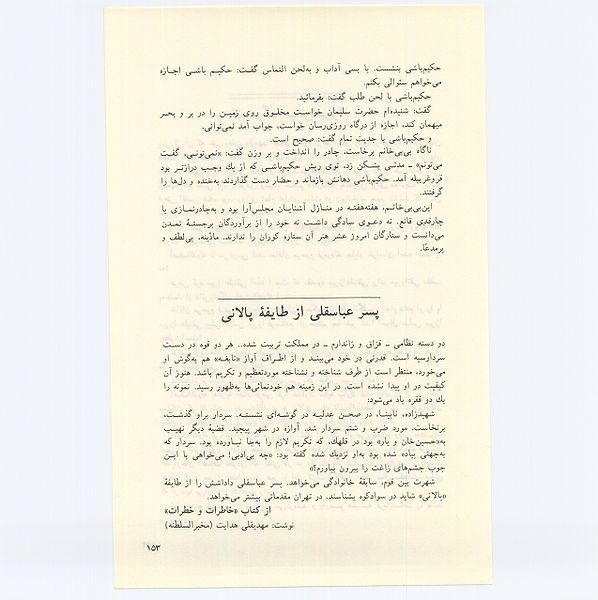 حکیم‌باشی بنشست. با بسی آداب و به‌لحن التماس گفت: حکیم باشی اجازه
می‌خواهم سئوالی بکنم.
حکیم‌باشی با لحن طلب گفت: بفرمائید.
گفت: شنیده‌ام حضرت سلیمان خواست مخلوق روی زمین را در بر و بحر
میهمان کند، اجازه از درگاه روزی‌رسان خواست، جواب آمد نمی‌توانی.
و حکیم‌باشی با جدیت تمام گفت: صحیح است.
ناگاه بی‌بی‌خانم برخاست. چادر را انداخت و بر وزن گفت: «نمی‌تونی، گفت
می‌تونم» ـ مدتی بشکن زد، توی ریش حکیم‌باشی که از یك وجب درازتر بود
قروغربیله آمد. حکیم‌باشی دهانش بازماند و حضار دست گذاردند به‌خنده و دل‌ها را
گرفتند.
این‌بی‌بی‌خانم، هفته‌هفته در منازل آشنایان مجلس‌آرا بود و به‌چادرنمازی یا
چارقدی قانع. نه دعوی سادگی داشت نه خود را از برآوردگان برجستهٔ تمدن
می‌دانست و ستارگان امروز عشر هنر آن ستاره کوران را ندارند. مادّینه، بی‌لطف و
پرمدعّا.
پسر عباسقلی از طایفهٔ پالانی
دو دسته نظامی ـ قزاق و ژاندارم ـ در مملکت تربیت شده.. هر دو قوه در دست
سردارسپه است. قدرتی در خود می‌بیند و از اطراف آواز «نابغه» هم به‌گوش او
می‌خورد، منتظر است از طرف شناخته و نشناخته موردتعظیم و تکریم باشد. هنوز آن
کیفیت در او پیدا نشده است. در این زمینه هم خودنمائی‌ها به‌ظهور رسید. نمونه را
یك دو فقره یاد می‌شود:
شهیدزاده، نابینا، در صحن عدلیه در گوشه‌ای نشسته. سردار براو گذشت،
برنخاست. مورد ضرب و شتم سردار شد. آوازه در شهر پیچید. قضیهٔ دیگر نهیب
به«حسین‌خان و یار» بود در قلهك، که تکریم لازم را به‌جا نیاورده بود. سردار که
به‌جهتی پیاده شده بود به‌او نزدیك شده گفته بود: «چه بی‌ادبی! می‌خواهی با این
چوب چشم‌های زاغت را بیرون بیاورم؟»
شهرت بین قوم، سابقهٔ خانوادگی می‌خواهد. پسر عباسقلی داداشش را از طایفهٔ
«پالانی» شاید در سوادکوه بشناسند. در تهران مقدماتی بیشتر می‌خواهد.
از کتاب «خاطرات و خطرات»
نوشت: مهدیقلی هدایت (مخبرالسلطنه)
۱۵۳